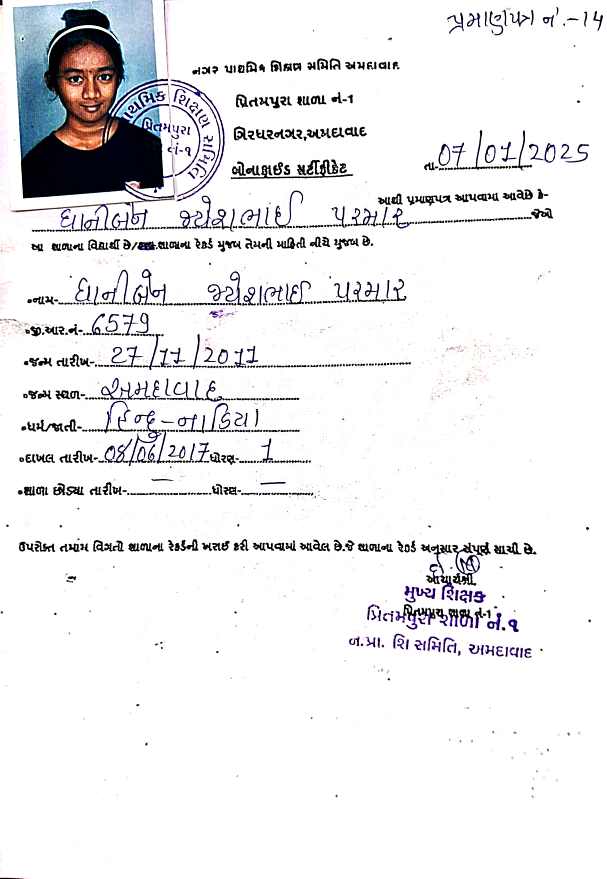 પ્રમાણપત્ર નં.-14
નગર પ્રાથમિક શિક્ષણ સમિતિ અમદાવાદ
પ્રિતમપુરા શાળા નં-1
ગિરધરનગર,અમદાવાદ
બોનાફાઈડ સર્ટીફીકેટ
તા- 07/01/2025
પ્રાથમિક શિક્ષણ સમિતિ
પ્રિતમપુરા
નં-૧
આથી પ્રમાણપત્ર આપવામાં આવેછે કે-
ધાનીબેન જયેશભાઈ પરમાર જેઓ
આ શાળાના વિદ્યાર્થી છે/ શાળાના રેકર્ડ મુજબ તેમની માહિતી નીચે મુજબ છે.
•નામ- ધાનીબેન જયેશભાઈ પરમાર
•જી.આર.નં- 6579
•જન્મ તારીખ- 27/11/2011
•જન્મ સ્થળ- અમદાવાદ
•ધર્મ/જાતી- હિન્દુ-નાડિયા
•દાખલ તારીખ- 08/06/2017 ધોરણ- 1
•શાળા છોડ્યા તારીખ- — ધોરણ- —
ઉપરોક્ત તમામ વિગતો શાળાના રેકર્ડની ખરાઈ કરી આપવામાં આવેલ છે.જે શાળાના રેકર્ડ અનુસાર સંપૂર્ણ સાચી છે.
આચાર્યશ્રી
મુખ્ય શિક્ષક
પ્રિતમપુરા શાળા નં-1
પ્રિતમપુરા શાળા નં.૧
ન.પ્રા. શિ સમિતિ, અમદાવાદ